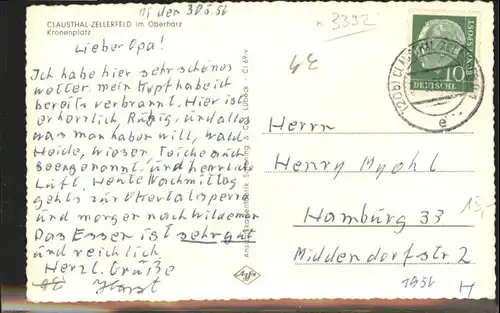 III den 30.5.56
CLAUSTHAL-ZELLERFELD im Oberharz
Kronenplatz
* 3392
Lieber Opa!
Ich habe hier sehr schönes
wetter. mein Kopf habe ich
bereits verbrannt. Hier ist
es herrlich, Ruhig, und alles
was man haben will, Wald
Heide, Wiesen, Teiche auch
Seen genannt, und herrliche
Luft. Heute Nachmittag
gehts zur Okertalsperre
und morgen nach Wildemann
Das Essen ist sehr gut
und reichlich
Herzl. Grüße
Horst
Schöning & Co., Lübeck · Cl 69 v
Agfa
CLAUSTHAL-ZELLERFELD
e
10
DEUTSCHE
BUNDESPOST
Herrn
Henry
Hamburg 33
Middendorfstr. 2
15,-
1956
H